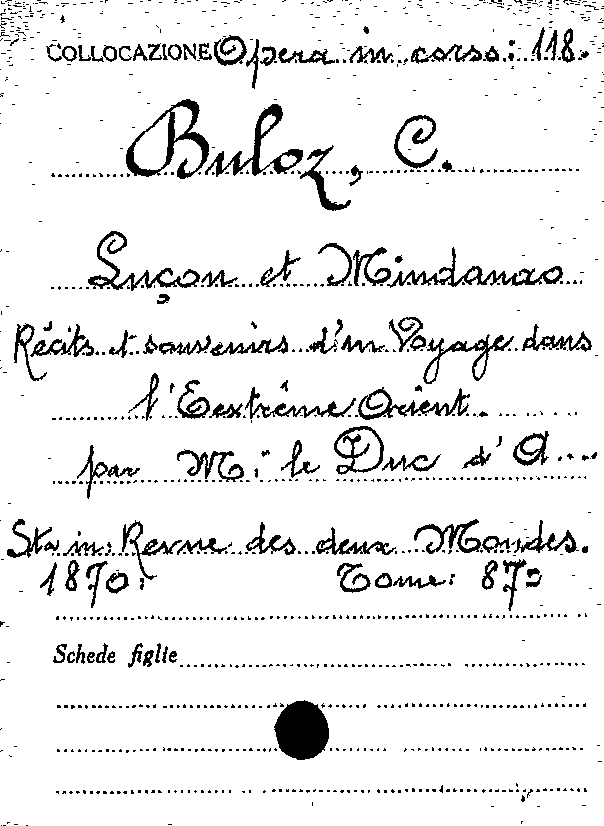 COLLOCAZIONE Opera in corso: 118.
Buloz, C.
Luçon et Mindanao
Récits et souvenirs d'un Voyage dans
l'Eextrême Orient.
par M: le Duc d' A....
Sta in: Revue des deux Mondes.
1870: Tome: 87º
Schede figlie